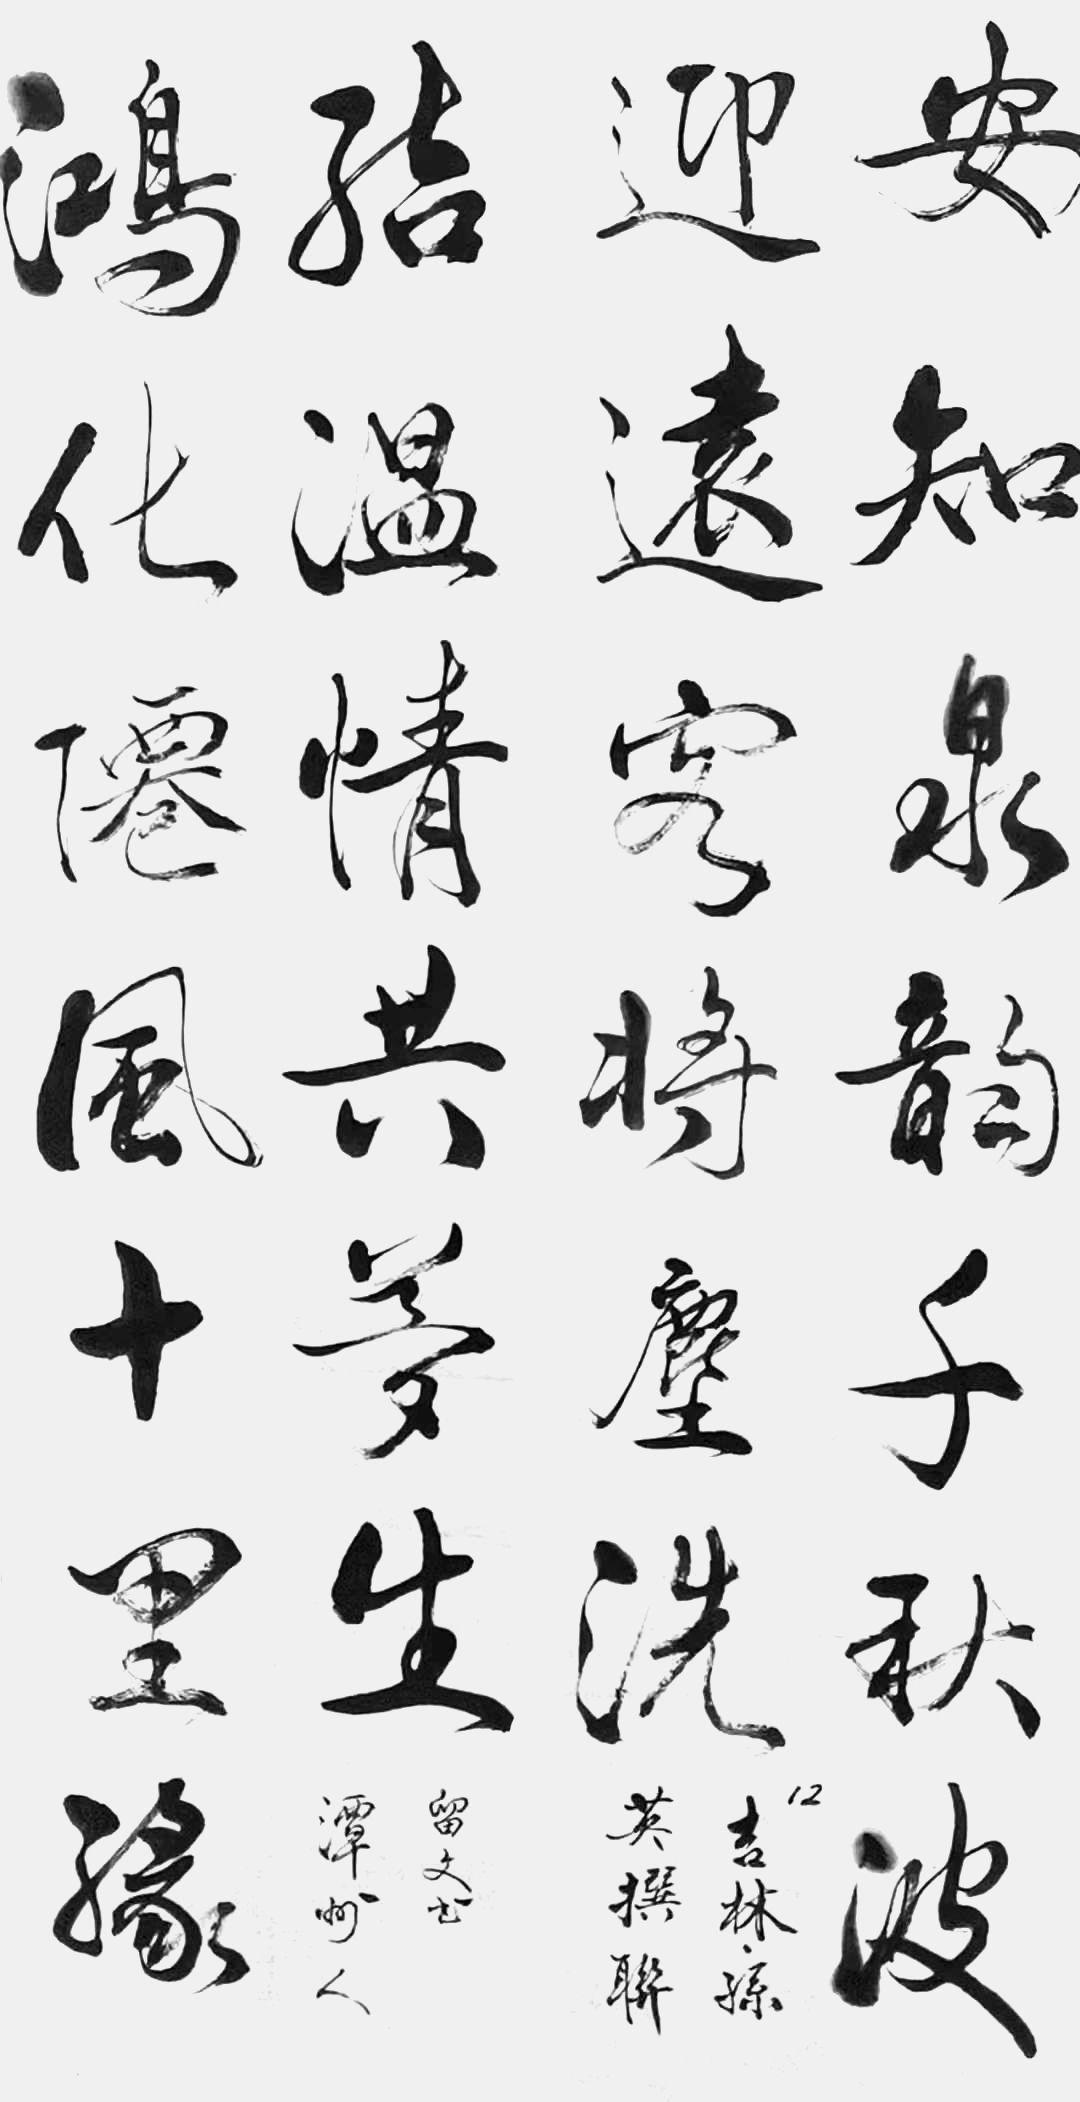 安知泉韵千秋波
迎遠客將塵洗
12
吉林·孫
英撰聯
鴻化僊風十里緣
結温情共夢生
潭州人
留文书